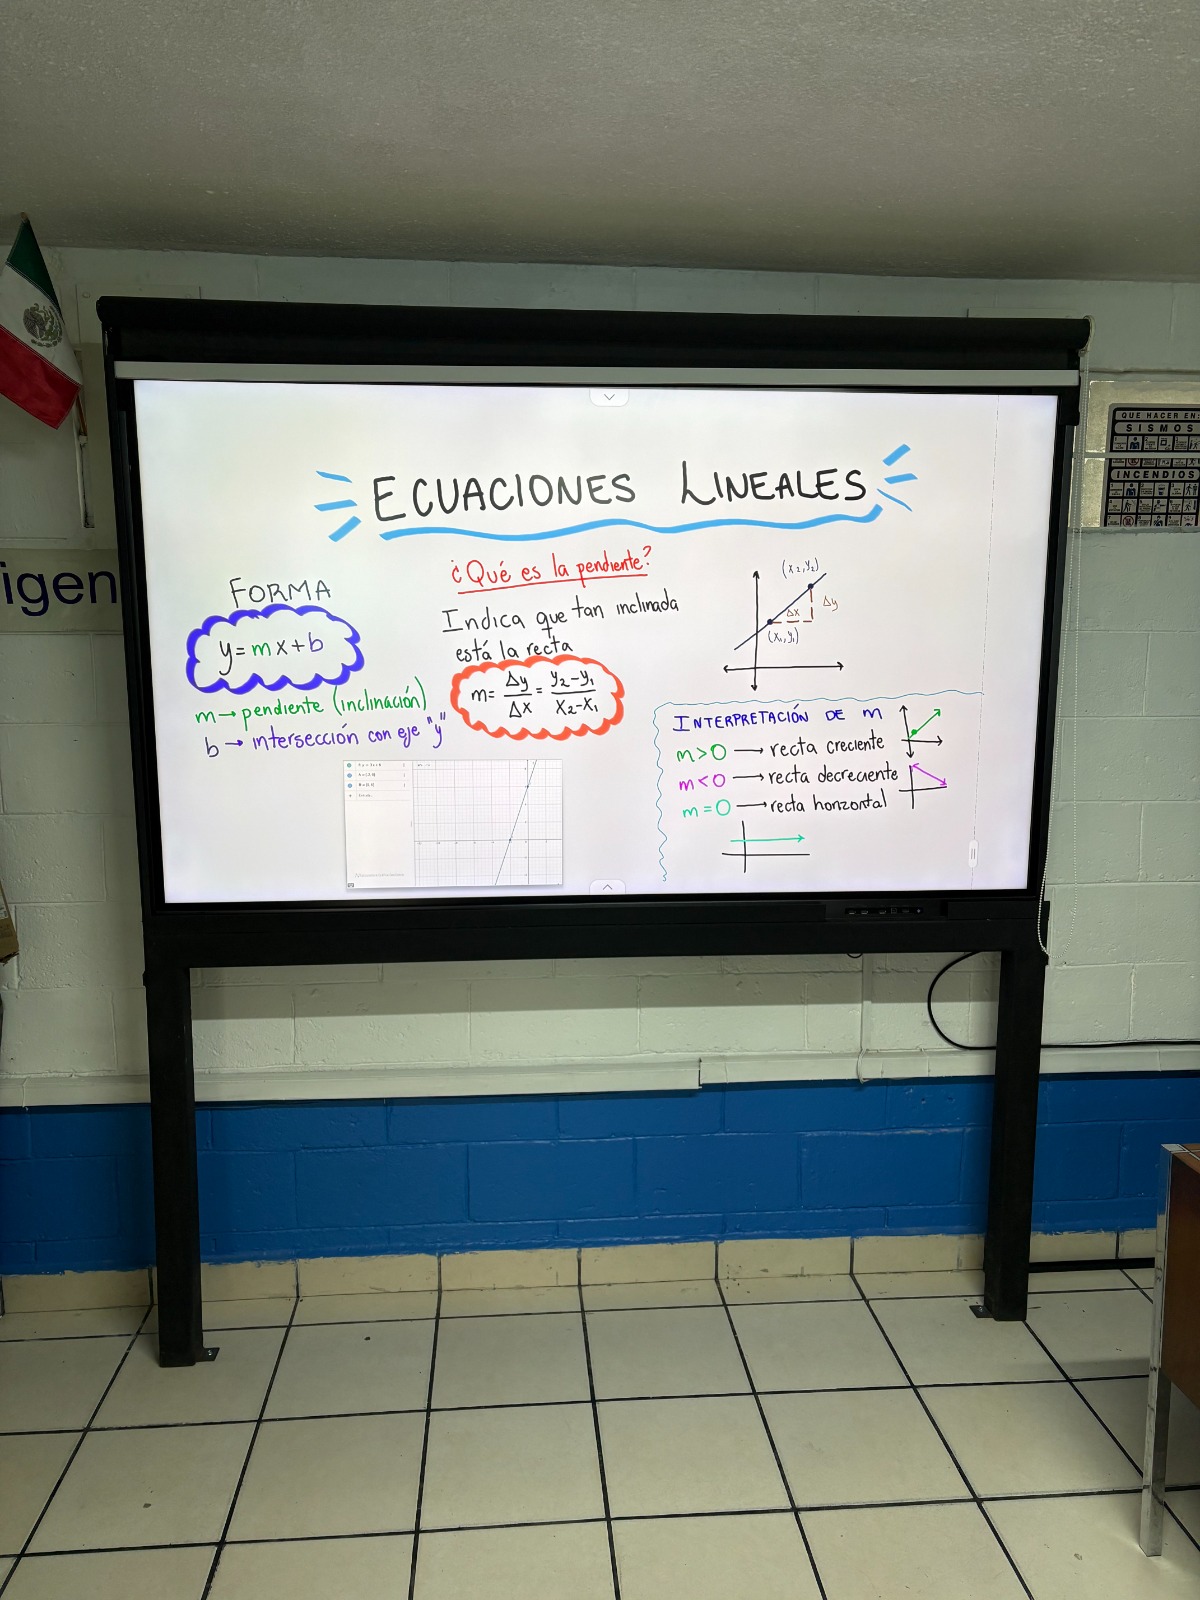 ECUACIONES LINEALES
FORMA
y=mx+b
m→pendiente (inclinación)
b→intersección con eje "y"
¿Qué es la pendiente?
Indica que tan inclinada
está la recta
m= Δy/Δx = y₂-y₁/x₂-x₁
(x₂,y₂)
Δx
Δy
(x₁,y₁)
INTERPRETACIÓN DE m
m>0 → recta creciente
m<0 → recta decreciente
m=0 → recta horizontal
igen
QUE HACER EN:
SISMOS
INCENDIOS